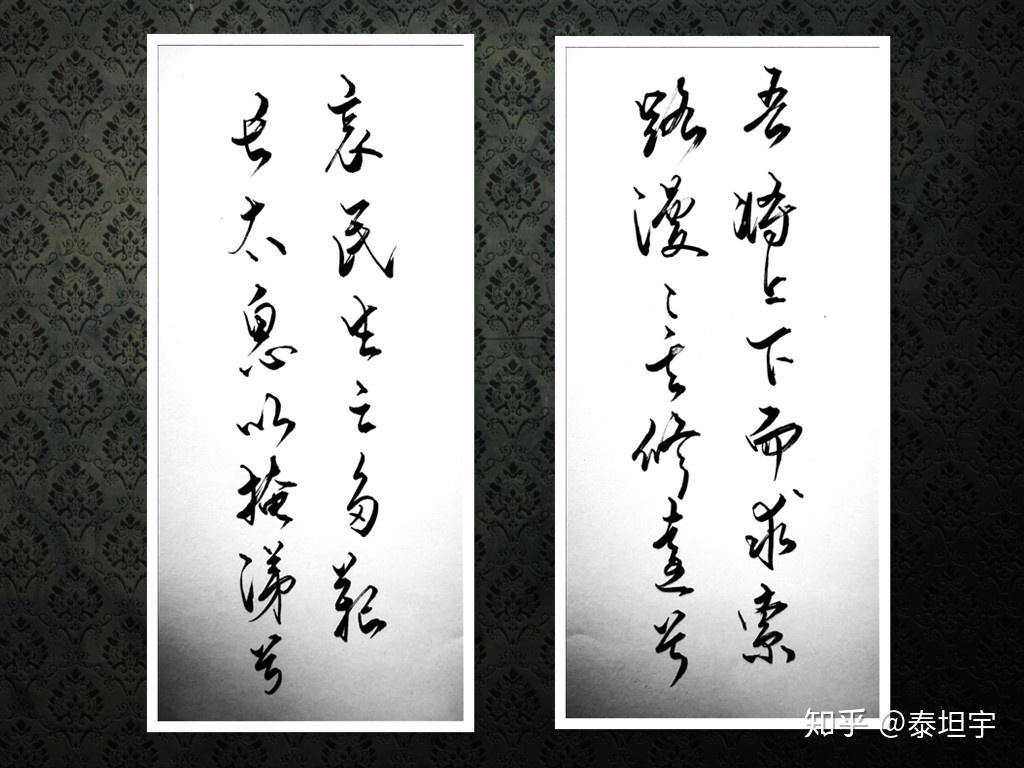 長太息以掩涕兮
哀民生之多艱
路漫〻其修遠兮
吾將上下而求索
知乎 @泰坦宇